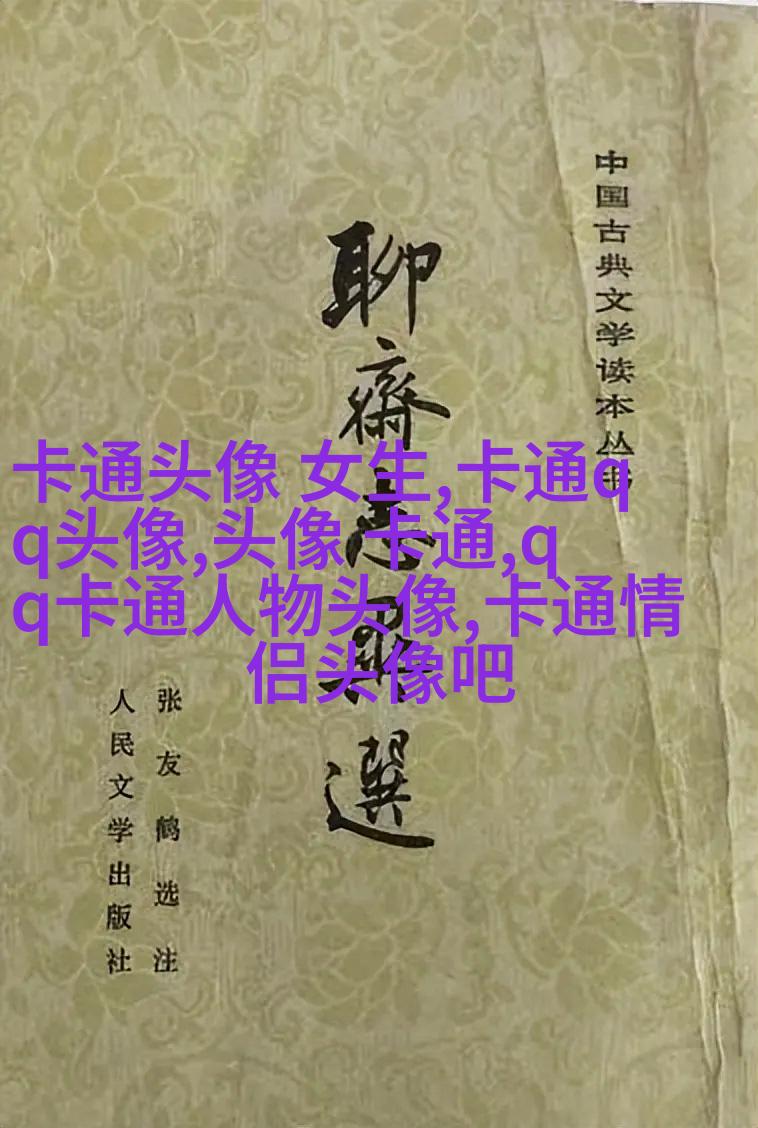 中国古典文学读本丛书
聊齋志異選
张友鹤选注
人民文学出版社
卡通头像 女生,卡通q
q头像,头像 卡通,q
q卡通人物头像,卡通情
侣头像吧